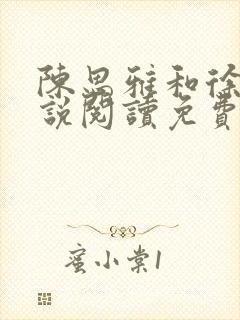 陳思雅和徐
說閱讀免費
蜜小棠1